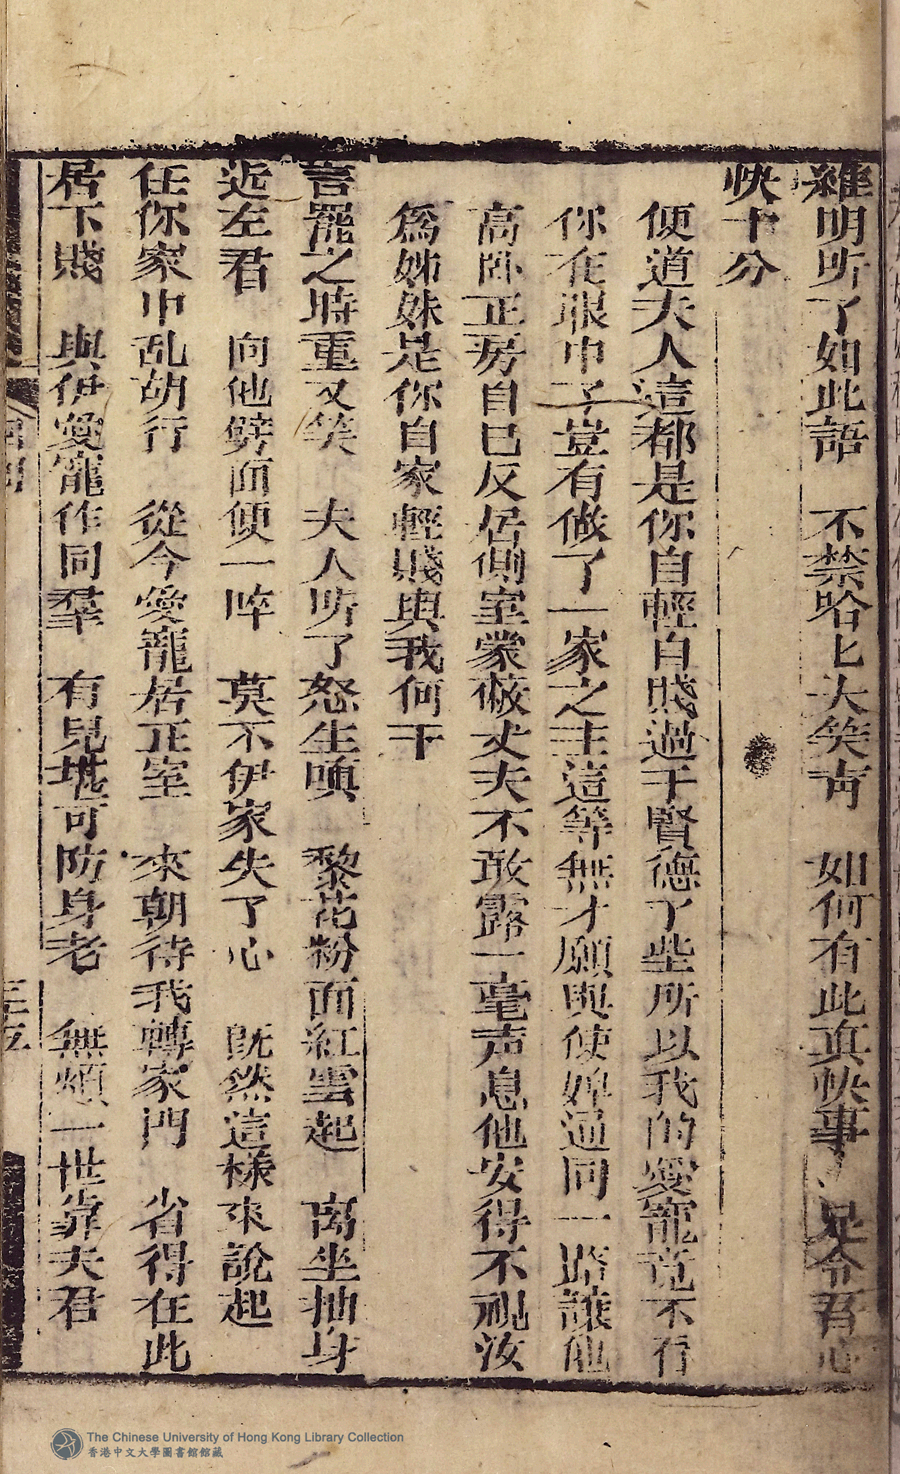 維明听了如此語　不禁哈匕大笑声　如何有此真快事　足令君心
快十分
便道夫人這都是你自輕自賤過于賢德了些所以我的愛寵竟不行
你在眼中了豈有做了一家之主這等無才願與使婢通同一路讓他
高卧正房自已反居側室蒙蔽丈夫不敢露一毫声息他安得不視汝
為姊妹是你自家輕賤與我何干
言罷之時重又笑　夫人听了怒生嗔　黎花粉面紅雲起　离坐抽身
近左君　向他劈面便一啐　莫不伊家失了心　既然這樣來說起
任你家中乱胡行　從今愛寵居正室　來朝待我轉家門　省得在此
居下賤　與伊愛寵作同羣　有兒堪可防身老　無煩一世靠夫君
三五
The Chinese University of Hong Kong Library Collection
香港中文大學圖書館館藏